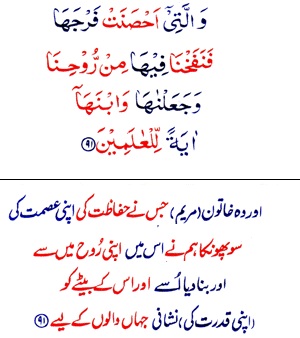 وَالَّتِیْۤ اَحْصَنَتْ فَرْجَهَا
فَنَفَخْنَا فِیْهَا مِنْ رُّوْحِنَا
وَجَعَلْنٰهَا وَابْنَهَاۤ
اٰیَةً لِّلْعٰلَمِیْنَ ﴿۹۱﴾
اور وہ خاتون (مریم) جس نے حفاظت کی اپنی عصمت کی
سو پھونکا ہم نے اس میں اپنی رُوح میں سے
اور بنا دیا اُسے اور اس کے بیٹے کو
(اپنی قدرت کی) نشانی جہاں والوں کے لیے ﴿۹۱﴾